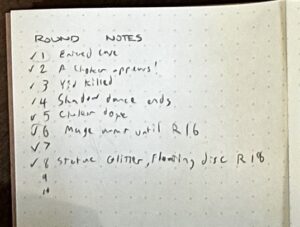 ROUND NOTES
✓ 1 Entered cave
✓ 2 A choker appears!
✓ 3 killed
✓ 4 Shadow dance ends
✓ 5 Choker
✓ 6 Mage until R16
✓ 7
✓ 8 Statue Glitter, Floating disc R18
9
10